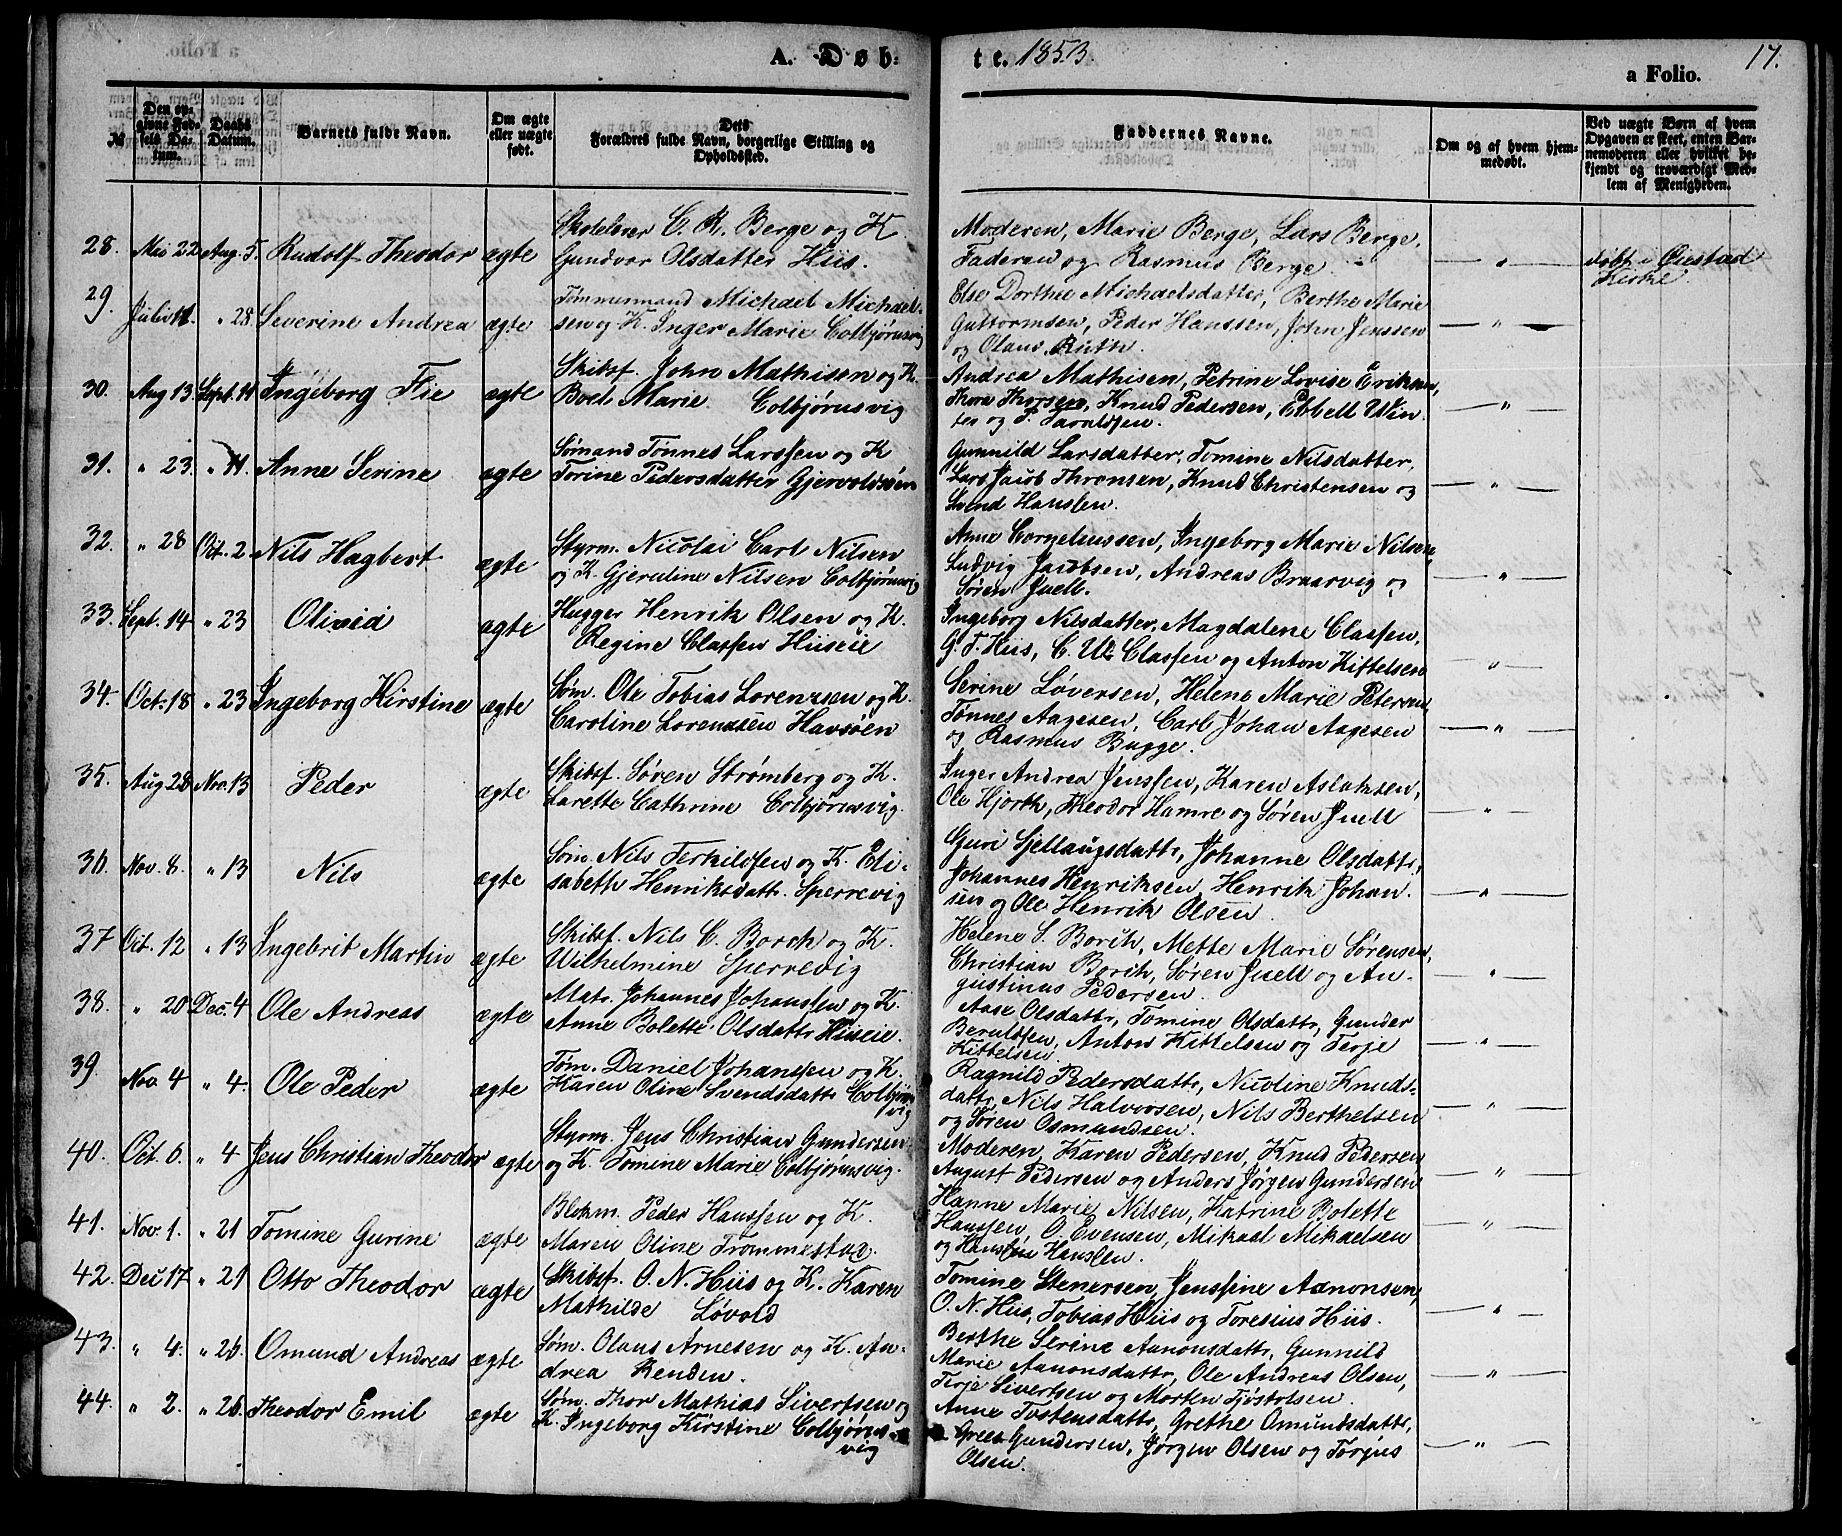 A. Døb-
te. 1853.
17.
a Folio.
№
Den op-
givne Fød-
sels Da-
tum.
Daabs
Datum.
Barnets fulde Navn.
Om ægte
eller uægte
født.
Dets
Forældres fulde Navn, borgerlige Stilling og
Opholdssted.
Faddernes Navne.
Om og af hvem hjem-
medøbt.
Ved uægte Børn af hvem
Opgaven er skeet, enten Bar-
nemoderen eller hvilket be-
kjendt og troværdigt Med-
lem af Menigheden.
28. Mai 22 Aug. 5. Rudolf Theodor ægte
Skolelærer C. R. Berge og K
Gundvor Olsdatter Hiis.
Moderen, Marie Berge, Lars Berge,
Faderen og Rasmus Berge.
— " —
døbt i Øiestad
Kirke.
29. Juli 11. " 28. Severine Andrea ægte
Tømmermand Michael Michael-
sen og K. Inger Marie Colbjørnsvig
Else Dorthe Michaelsdatter, Berthe Marie
Guttormsen, Peder Hanssen, John Jenssen
og Olaus Ruth.
— " —
30. Aug 13. Sept. 11 Ingeborg Fie ægte
Skibsf. John Mathisen og K.
Boel Marie. Colbjørnsvig
Andrea Mathisen, Petrine Lovise Eriksen,
Thora Thorsen, Knud Pedersen, Ebbell Win-
ter og T. Taraldsen.
— " —
31. " 23. " 11. Anne Serine ægte
Sømand Tønnes Larssen og K
Torine Pedersdatter Gjervoldsøen
Gunnild Larsdatter, Tomine Nilsdatter,
Lars Jacob Thronsen, Knud Christensen og
Svend Hanssen.
— " —
32. " 28 Oct. 2. Nils Hagbert ægte
Styrm. Nicolai Carl Nilsen
og K. Gjeruline Nilsen Colbjørnsvig
Anne Cornelinssen, Ingeborg Marie Nilsen,
Ludvig Jacobsen, Andreas Braarvig og
Søren Juell.
— " —
33. Sept. 14 " 23 Olivid ægte
Hugger Henrik Olsen og K.
Regine Classen Hiiseie
Ingeborg Nilsdatter, Magdalene Classen,
G. T. Hiis, C. W. Classen og Anton Kittelsen
— " —
34. Oct. 18 " 23 Ingeborg Kirstine ægte
Søm. Ole Tobias Lorenssen og K.
Caroline Lorenssen Havsøen
Serine Løversen, Helene Marie Petersen,
Tønnes Aagesen, Carl Johan Aagesen
og Rasmus Bugge.
— " —
35. Aug 28 Nov. 13 Peder ægte
Skibsf. Søren Strømberg og K.
Larette Cathrine Colbjørnsvig.
Inger Andrea Jenssen, Karen Aslaksen,
Ole Hjorth, Theodor Hamre og Søren Juell
— " —
36. Nov. 8. " 13 Nils ægte
Søm. Nils Terkildsen og K. Eli-
sabeth Henriksdatt. Sperrevig
Guri Sjellaugsdattr, Johanne Olsdattr,
Johannes Henriksen, Henrik Johan-
sen og Ole Henrik Olsen.
— " —
37 Oct. 12 " 13 Ingebrit Martin ægte
Skibsf. Nils C. Borch og K.
Wilhelmine Sperrevig
Helene S. Borch, Mette Marie Sørensen,
Christian Borch, Søren Juell og Au-
gustinus Pedersen.
— " —
38. " 20 Dec. 4 Ole Andreas ægte
Matr. Johannes Johanssen og K.
Anne Bolette Olsdattr Hiiseie.
Aase Olsdattr, Tomine Olsdattr, Gunder
Beruldsen, Anton Kittelsen og Terje
Kittelsen.
— " —
39. Nov. 4 " 4. Ole Peder ægte
Tøm. Daniel Johanssen og K.
Karen Oline Svendsdattr Colbjørns-
vig
Ragnild Pedersdattr, Nicoline Knuds-
dattr, Nils Halvorsen, Nils Berthelsen
og Søren Osmundsen.
— " —
40. Oct. 6. " 4 Jens Christian Theodor ægte
Styrm. Jens Christian Gundersen
og K. Tomine Marie Colbjørnsvig.
Moderen, Karen Pedersen, Knud Pedersen,
August Pedersen og Anders Jørgen Gundersen
— " —
41. Nov. 1. " 21 Tomine Gurine ægte
Blokm. Peder Hanssen og K.
Maren Oline Trommestad.
Hanne Marie Nilsen, Katrine Bolette
Hanssen, O. Evensen, Mikael Mikaelsen
og Hanssen Hanssen.
— " —
42. Dec 17 " 21 Otto Theodor ægte
Skibsf. O. N. Hiis og K. Karen
Mathilde Løvold
Tomine Stenersen, Jenssine Aanonsen,
O. N. Hiis, Tobias Hiis og Toresius Hiis.
— " —
43. " 4. " 26. Omund Andreas ægte
Søm. Olaus Arnesen og K. An-
drea Renden.
Berthe Serine Aanonsdattr, Gunnild
Marie Aanonsdattr, Ole Andreas Olsen,
Terje Sivertsen og Morten Tjøstolsen.
— " —
44. " 2. " 26. Theodor Emil ægte
Søm. Thor Mathias Sivertsen og
K. Ingeborg Kirstine Colbjørns-
vig
Anne Tostensdattr, Grethe Omundsdattr,
Greer Gundersen, Jørgen Olsen og Torjus
Olsen.
— " —